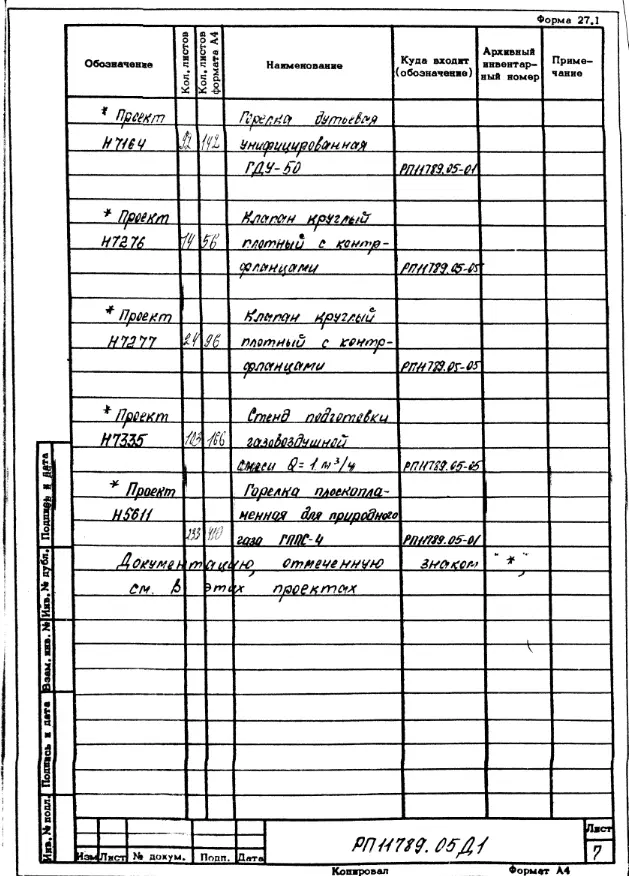 Форма 27.1
Обозначение Кол. листов Кол. листов формата А4 Наименование Куда входит (обозначение) Архивный инвентарный номер Примечание
* Проект Горелка дутьевая
Н7164 92 142 унифицированная
ГДУ-50 РП11789.05-01
* Проект Клапан круглый
Н7276 14 56 плотный с контр-
фланцами РП11789.05-05
* Проект Клапан круглый
Н7277 24 96 плотный с контр-
фланцами РП11789.05-05
* Проект Стенд подготовки
Н7335 103 166 газовоздушной
смеси Q=1 м³/ч РП11789.05-05
* Проект Горелка плоскопла-
Н5611 менная для природного
233 410 газа ГППС-4 РП11789.05-01
Документацию, отмеченную знаком "*",
см. в этих проектах
Инв. № подл. Подпись и дата Взам. инв. № Инв. № дубл. Подпись и дата
РП11789.05Д1
Лист
7
Изм Лист № докум. Подп. Дата
Копировал Формат А4